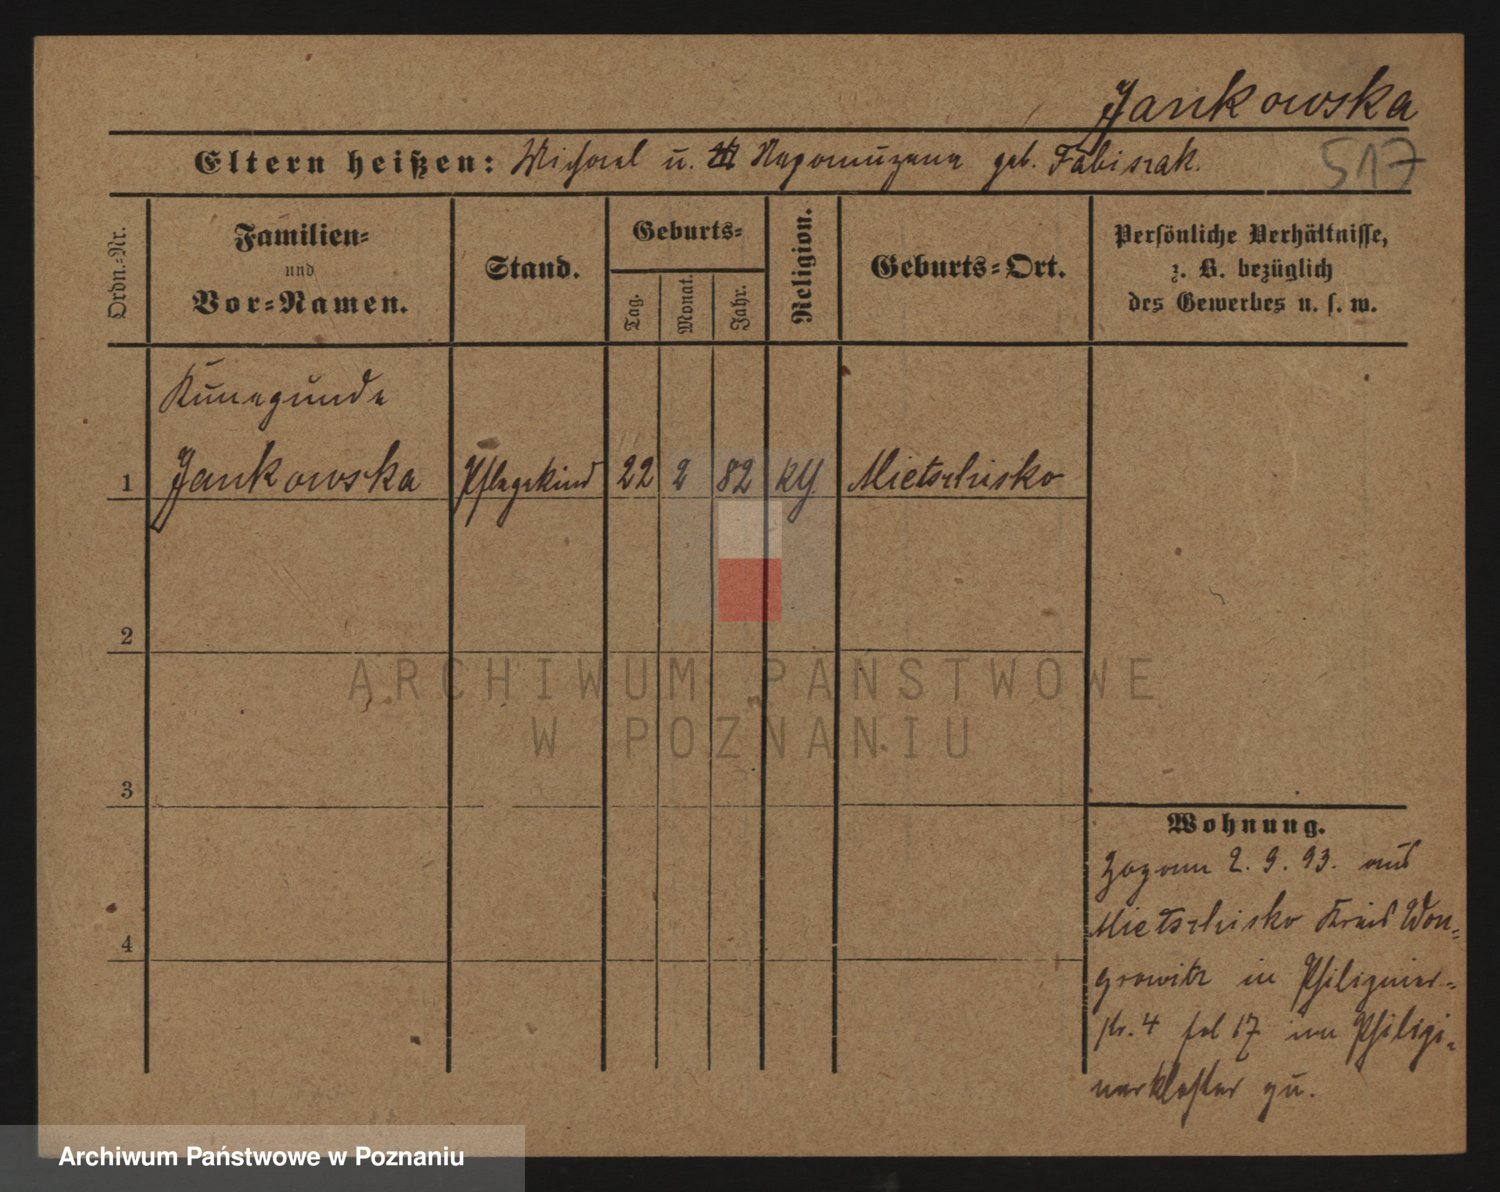 Jankowska
Eltern heißen: Michael u. Nepomuzena geb. Fabiszak.
517
Ordn.-Nr.
Familien-
und
Vor-Namen.
Stand.
Geburts-
Tag.
Monat.
Jahr.
Religion.
Geburts-Ort.
Persönliche Verhältnisse,
z. B. bezüglich
des Gewerbes u. s. w.
Kunegunde
1 Jankowska Pflegekind 22 2 82 kth. Mietschisko
2
3
4
Wohnung.
Zozann 2. 9. 93. aus
Mietschisko Kreis Won-
growitz in Philippiner-
str. 4 fol 17 im Philippi-
nerkloster zu.
ARCHIWUM PAŃSTWOWE
W POZNANIU
Archiwum Państwowe w Poznaniu